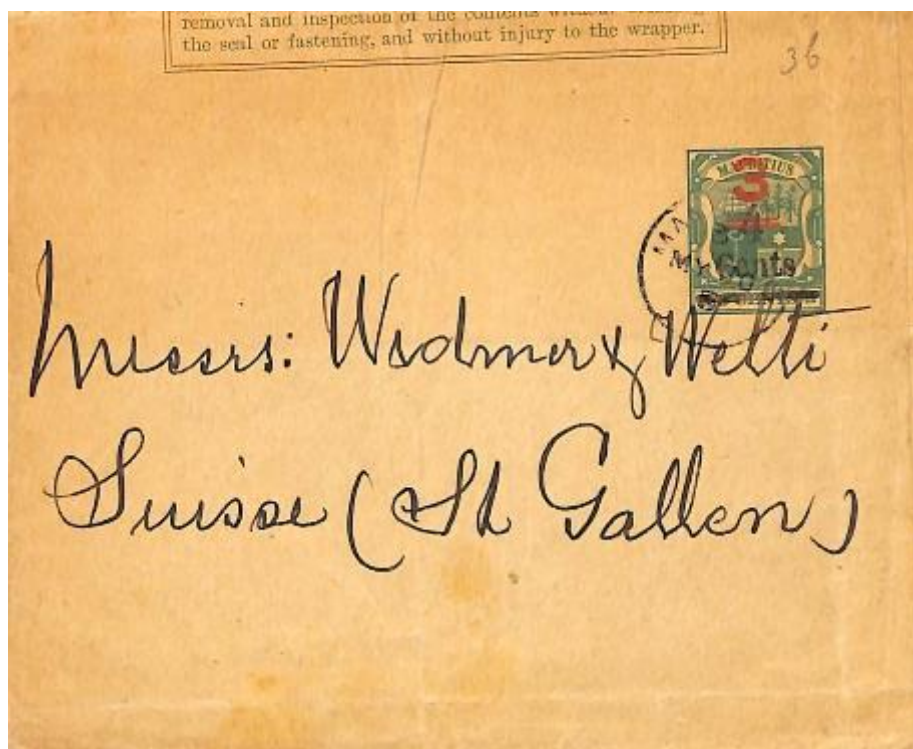 removal and inspection of the contents
the seal or fastening, and without injury to the wrapper.
36
MAURITIUS
3
Cents
Messrs: Widmer & Welti
Suisse (St Gallen)